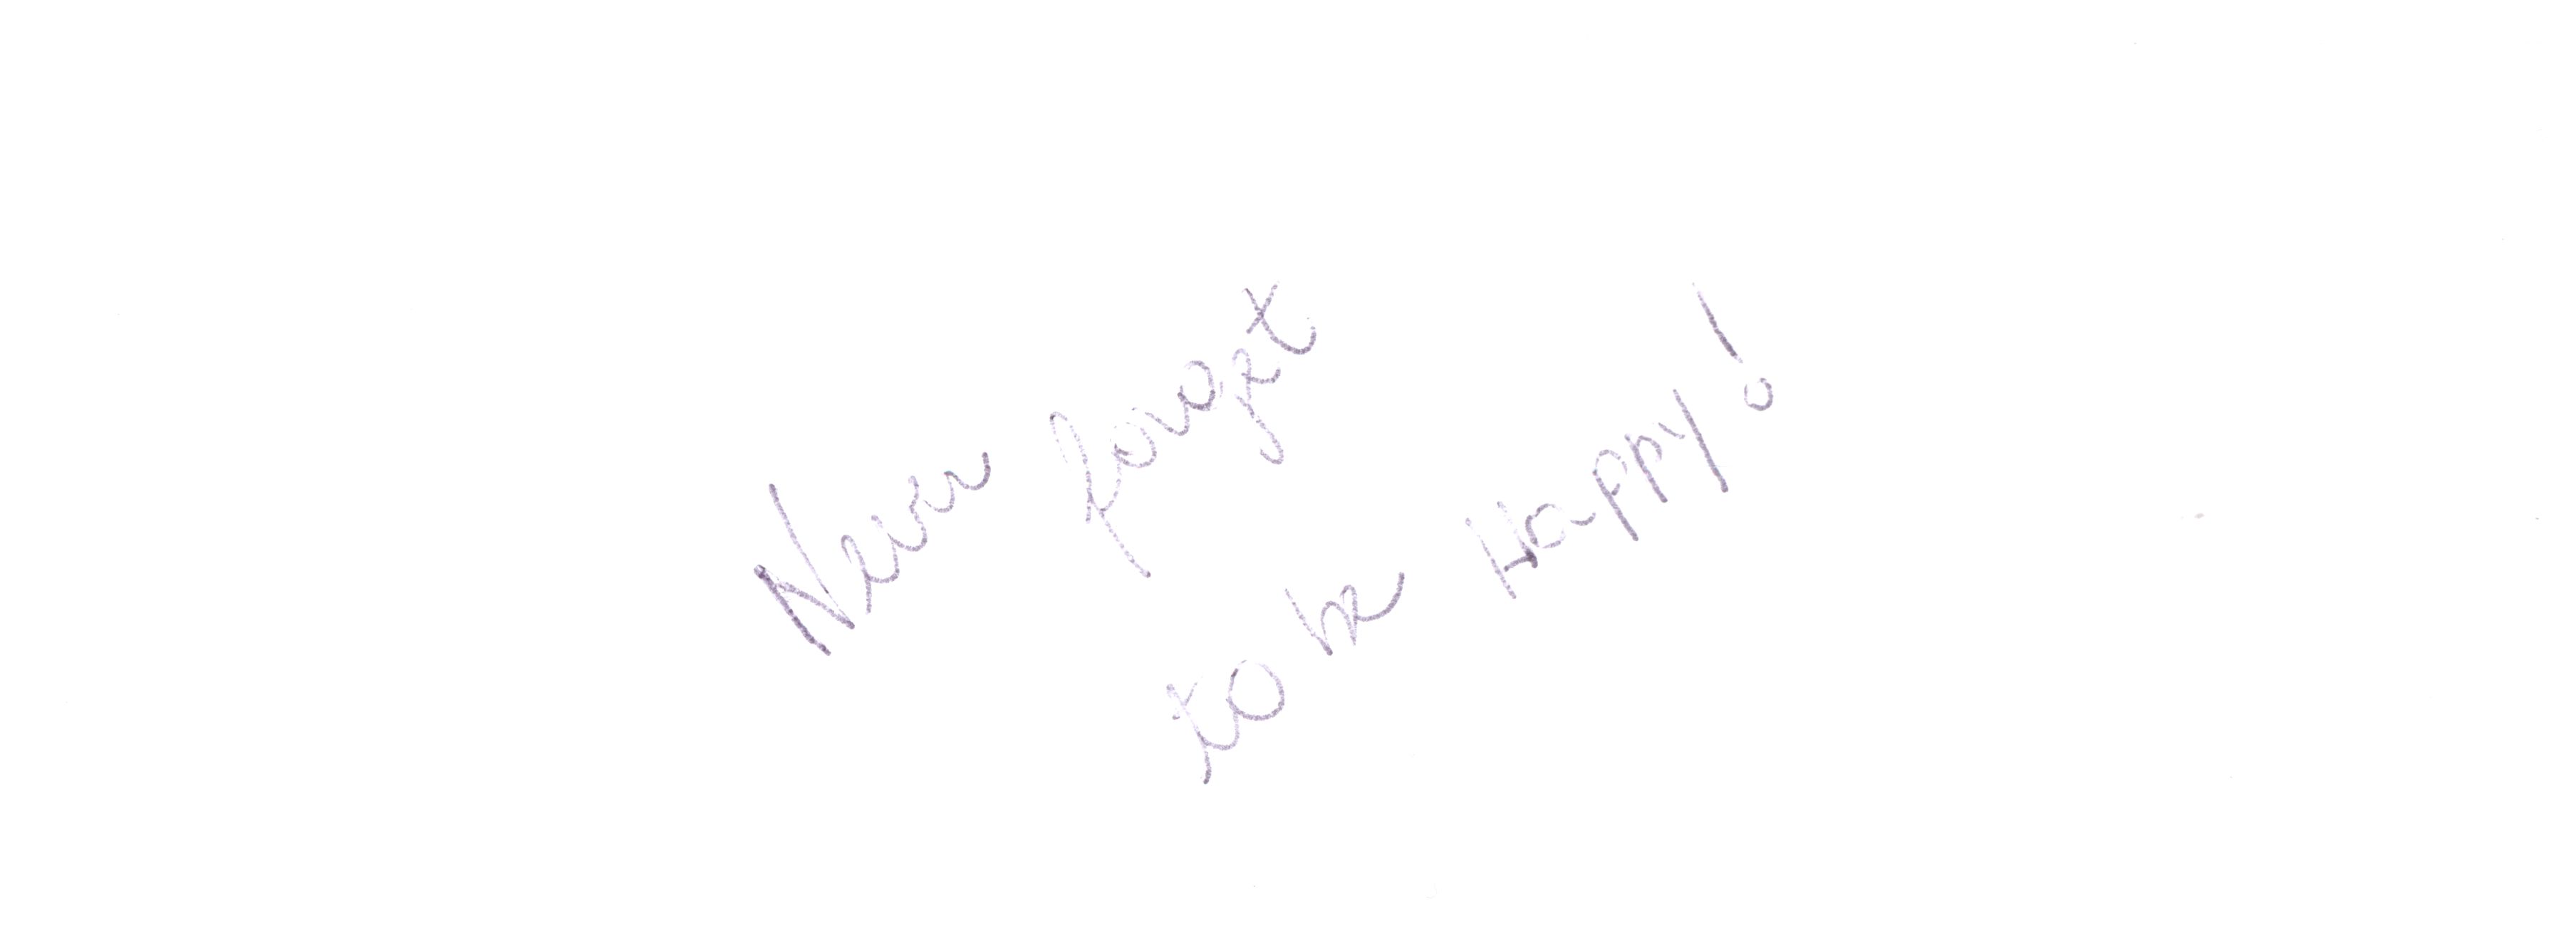 Never forget
to be Happy!